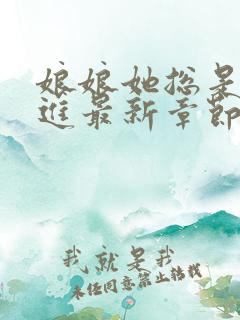 娘娘她总是
进最新章节
我就是我
未经同意禁止转载